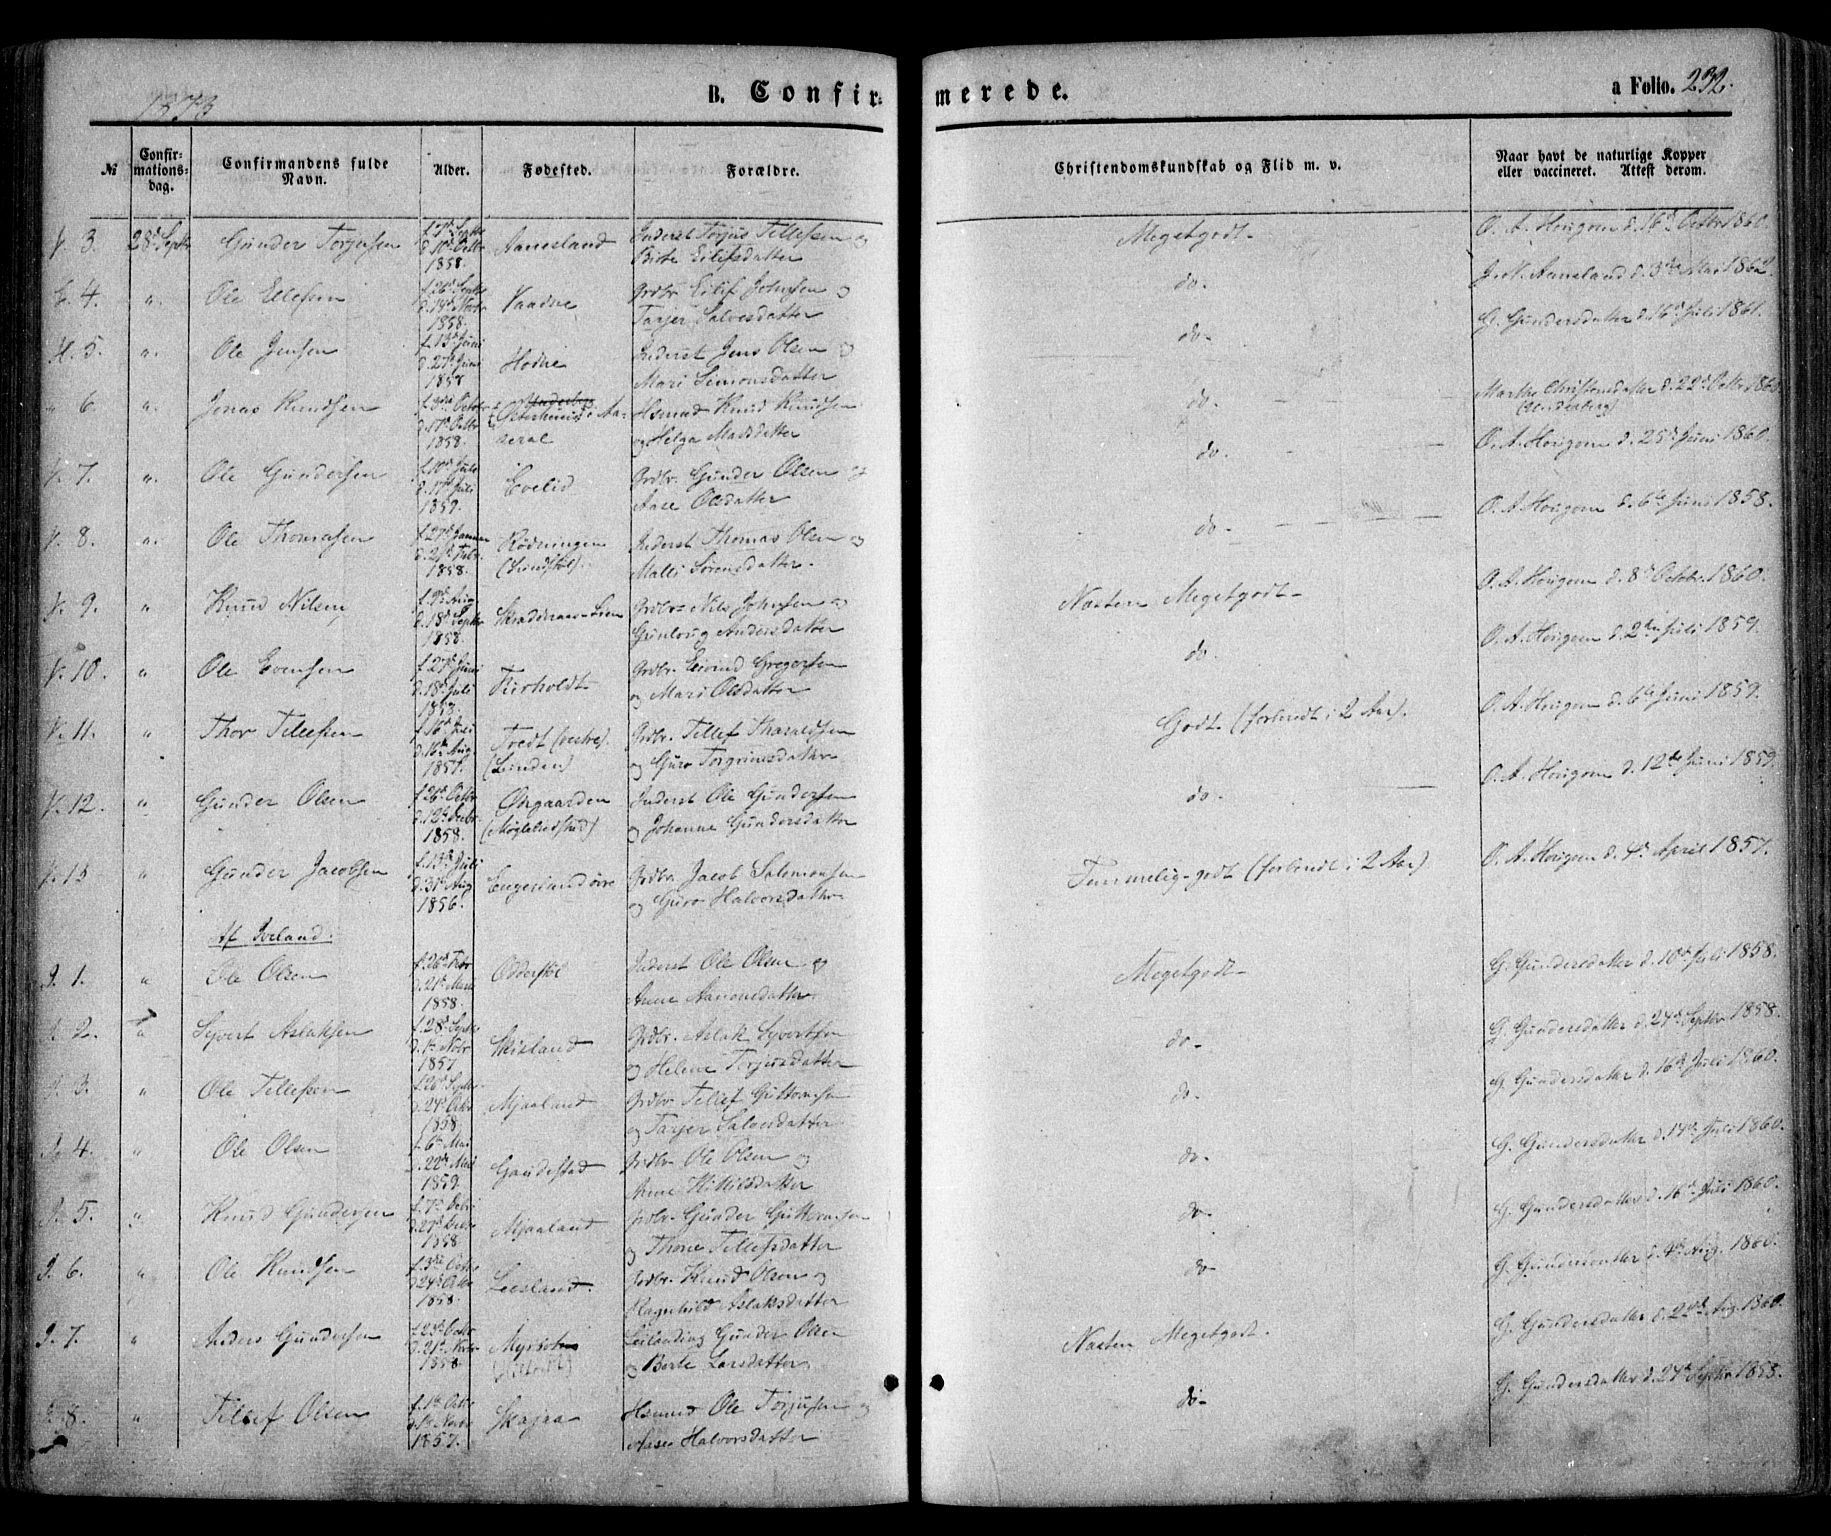 1873
B. Confirmerede.
a Folio. 232.
№
Confirmationsdag.
Confirmandens fulde Navn.
Alder.
Fødested.
Forældre.
Christendomskundskab og Flid m. v.
Naar havt de naturlige Kopper eller vaccineret. Attest derom.
3. 28d Septbr Gunder Torjusen 1858. Aanesland Inderst Torjus Tellefsen og Birte Eilifsdatter Megetgodt. O. A. Hougom d. 16d Octbr 1860.
4. " Ole Ellefsen f. 26d Septbr d. 14d Novbr 1858. Vaadne Grdbr. Eilif Johnsen og Tarjer Salvesdatter do. J. N. Aanesland d. 3die Mai 1862.
5. " Ole Jensen f. 13d Juni d. 27d Juni 1858 Hodne Inderst Jens Olsen og Mari Simonsdatter do. G. Gundersdatter d. 16d Juli 1861.
6. " Jonas Knudsen f. 3die Octbr d. 17d Octbr 1858. Aaseral Husmd Knud Knudsen og Helga Madsdatter do. Marthe Christensdatter d. 22d Octbr 1860
7. " Ole Gundersen f. 10d Juli d. 17d Juli 1859. Evelid Grdbr. Gunder Olsen og Aase Olsdatter do. O. A. Hougom d. 25d Juni 1860.
8. " Ole Thomasen f. 27d Januar d. 21d Febr. 1858. Rødningen Inderst Thomas Olsen og Malli Sørensdatter. do. O. A. Hougom d. 6te Juni 1858.
9. " Knud Nilsen d. 18d Septbr 1858. Grdbr. Nils Johnsen og Gunloug Andersdatter Næsten Megetgodt. O. A. Hougom d. 8d Octbr. 1860.
10. " Ole Evensen f. 27d Juni d. 18d Juli 1858. Furholdt Grdbr. Eivind Gregersen og Mari Olsdatter do. O. A. Hougom d. 2den Juli 1859.
11. " Thor Tellefsen f. 16d Juli d. 16d Aug. 1857. Tvedt (vestre). (Linden) Grdbr. Tellef Tharaldsen og Guro Torgrimsdatter Godt. (forberedt i 2 Aar). O. A. Hougom d. 6te Juni 1859.
12. " Gunder Olsen f. 26d Octbr d. 12d Decbr 1858. Øigaarden (Møglebødstad) Inderst Ole Gundersen og Johanne Gundersdatter do. O. A. Hougom d. 12te Juni 1859.
13 " Gunder Jacobsen f. 13d Juli d. 31d Aug. 1856. Engesland øvre Grdbr. Jacob Salomonsen og Guro Halvorsdatter Temmelig-godt (forberedt i 2 Aar) O. A. Hougom d. 4d April 1857.
Af Iveland.
I. 1. " Ole Olsen f. 26d Febr d. 21d Marts 1858. Odderstøl Inderst Ole Olsen og Anne Aanonsdatter Megetgodt G. Gundersdatter d. 10d Juli 1858.
I. 2. " Syvert Aslaksen f. 28d Septbr d. 1ste Novbr 1857 Skisland Grdbr. Aslak Syvertsen og Helene Torjusdatter do. G. Gundersdatter d. 24d Septbr 1858.
I. 3. " Ole Tellefsen f. 26d Septbr d. 24d Octbr 1858 Mjaaland Grdbr Tellef Guttormsen og Tarjer Salvesdatter do. G. Gundersdatter d. 16d Juli 1860.
4. " Ole Olsen f. 6te Mai d. 22d Mai 1859. Gaudestad Grdbr. Ole Olsen og Anne Kittilsdatter do. G. Gundersdatter d. 17d Juli 1860.
I. 5. " Knud Gundersen d. 27d Decbr 1858 Mjaaland Grdbr. Gunder Guttormsen og Thone Tellefsdatter do. G. Gundersdatter d. 16d Juli 1860.
I. 6. " Ole Knudsen f. 3die Octbr d 24d Octbr 1858. Leesland. Grdbr. Knud Olsen og Ragnhild Aslaksdatter do G. Gundersdatter d. 9d Aug. 1860.
I. 7. " Anders Gundersen f. 23d Octbr d. 21d Novbr 1858. Leilending Gunder Olsen og Berte Larsdatter Næsten Megetgodt. G. Gundersdatter d. 22d Aug. 1860.
I. 8. " Tellef Olsen f. 1ste Octbr d. 1ste Novbr 1857. Skajaa Husmd Ole Torjusen og Aase Halvorsdatter do. G. Gundersdatter d. 24d Septbr 1858.